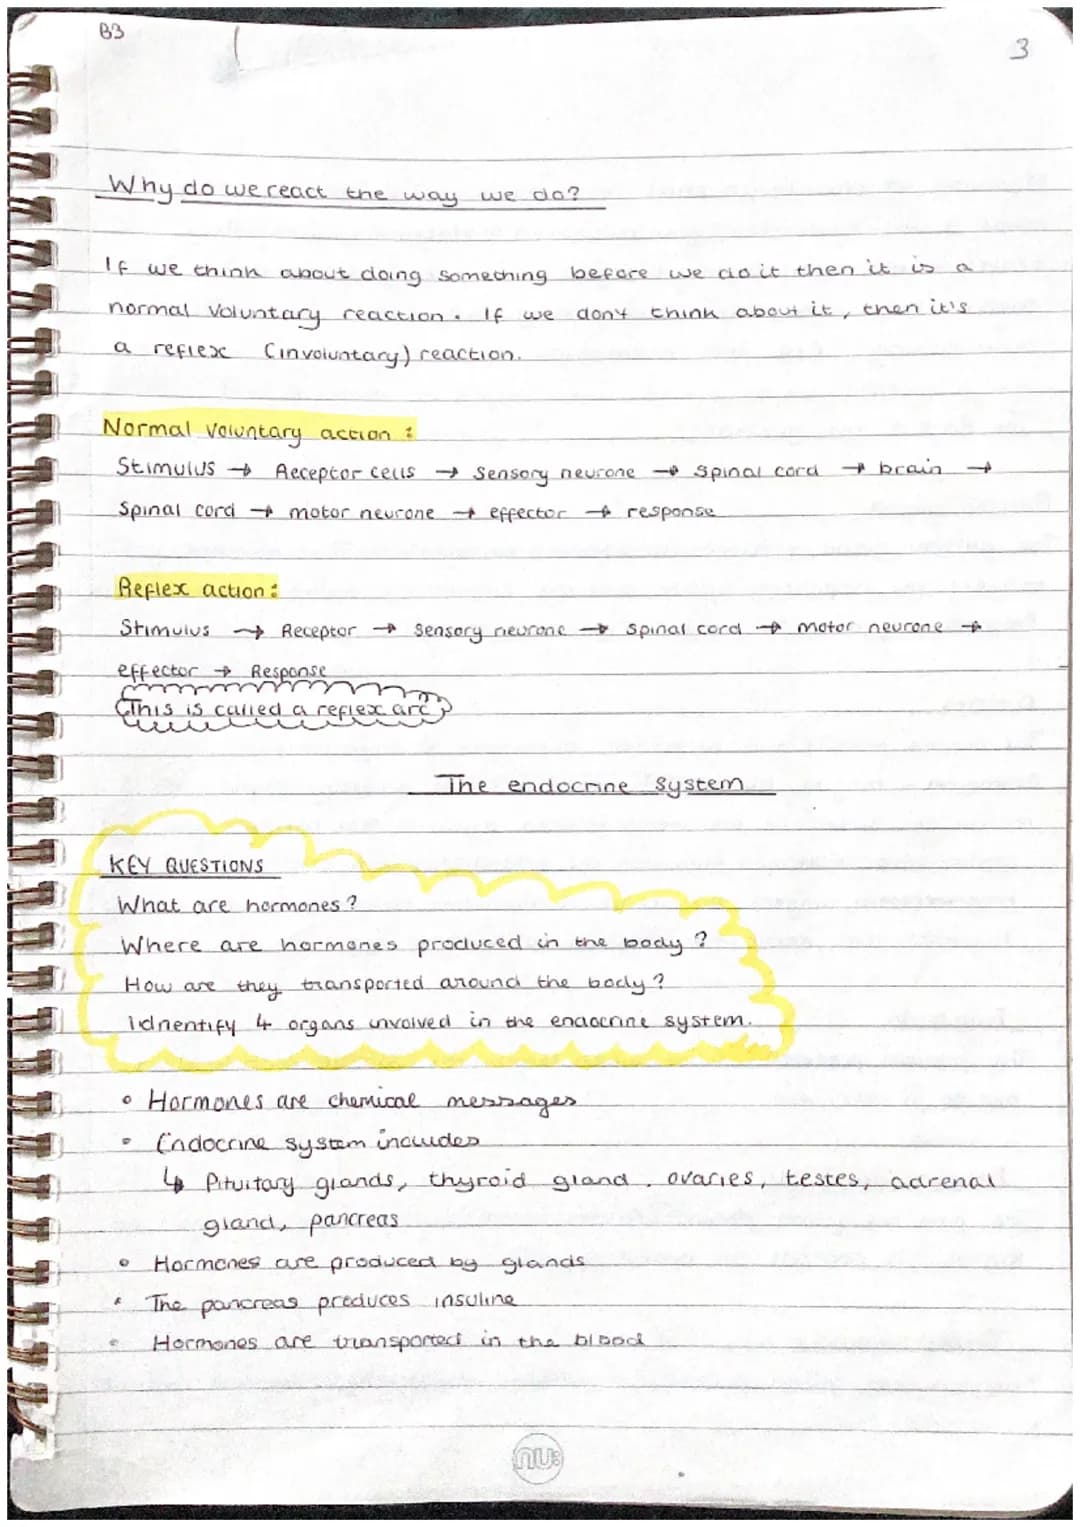 B3
3
Why do we react the way we do?
If we think about doing something before we do it then it is a
normal voluntary reaction. If we don't think about it, then it's
a reflex (involuntary) reaction.
Normal voluntary action:
Stimulus → Receptor cells → Sensory neurone → Spinal cord → brain →
Spinal cord → motor neurone → effector → response
Reflex action:
Stimulus → Receptor → Sensory neurone → Spinal cord → motor neurone →
effector → Response
This is called a reflex arc
The endocrine system
KEY QUESTIONS
What are hormones?
Where are hormones produced in the body?
How are they transported around the body?
Idnentify 4 organs involved in the endocrine system.
• Hormones are chemical messages
• Endocrine system includes
↳ Pituitary glands, thyroid gland, ovaries, testes, adrenal
gland, pancreas
• Hormones are produced by glands
• The pancreas produces insuline
• Hormones are transported in the blood
nu: